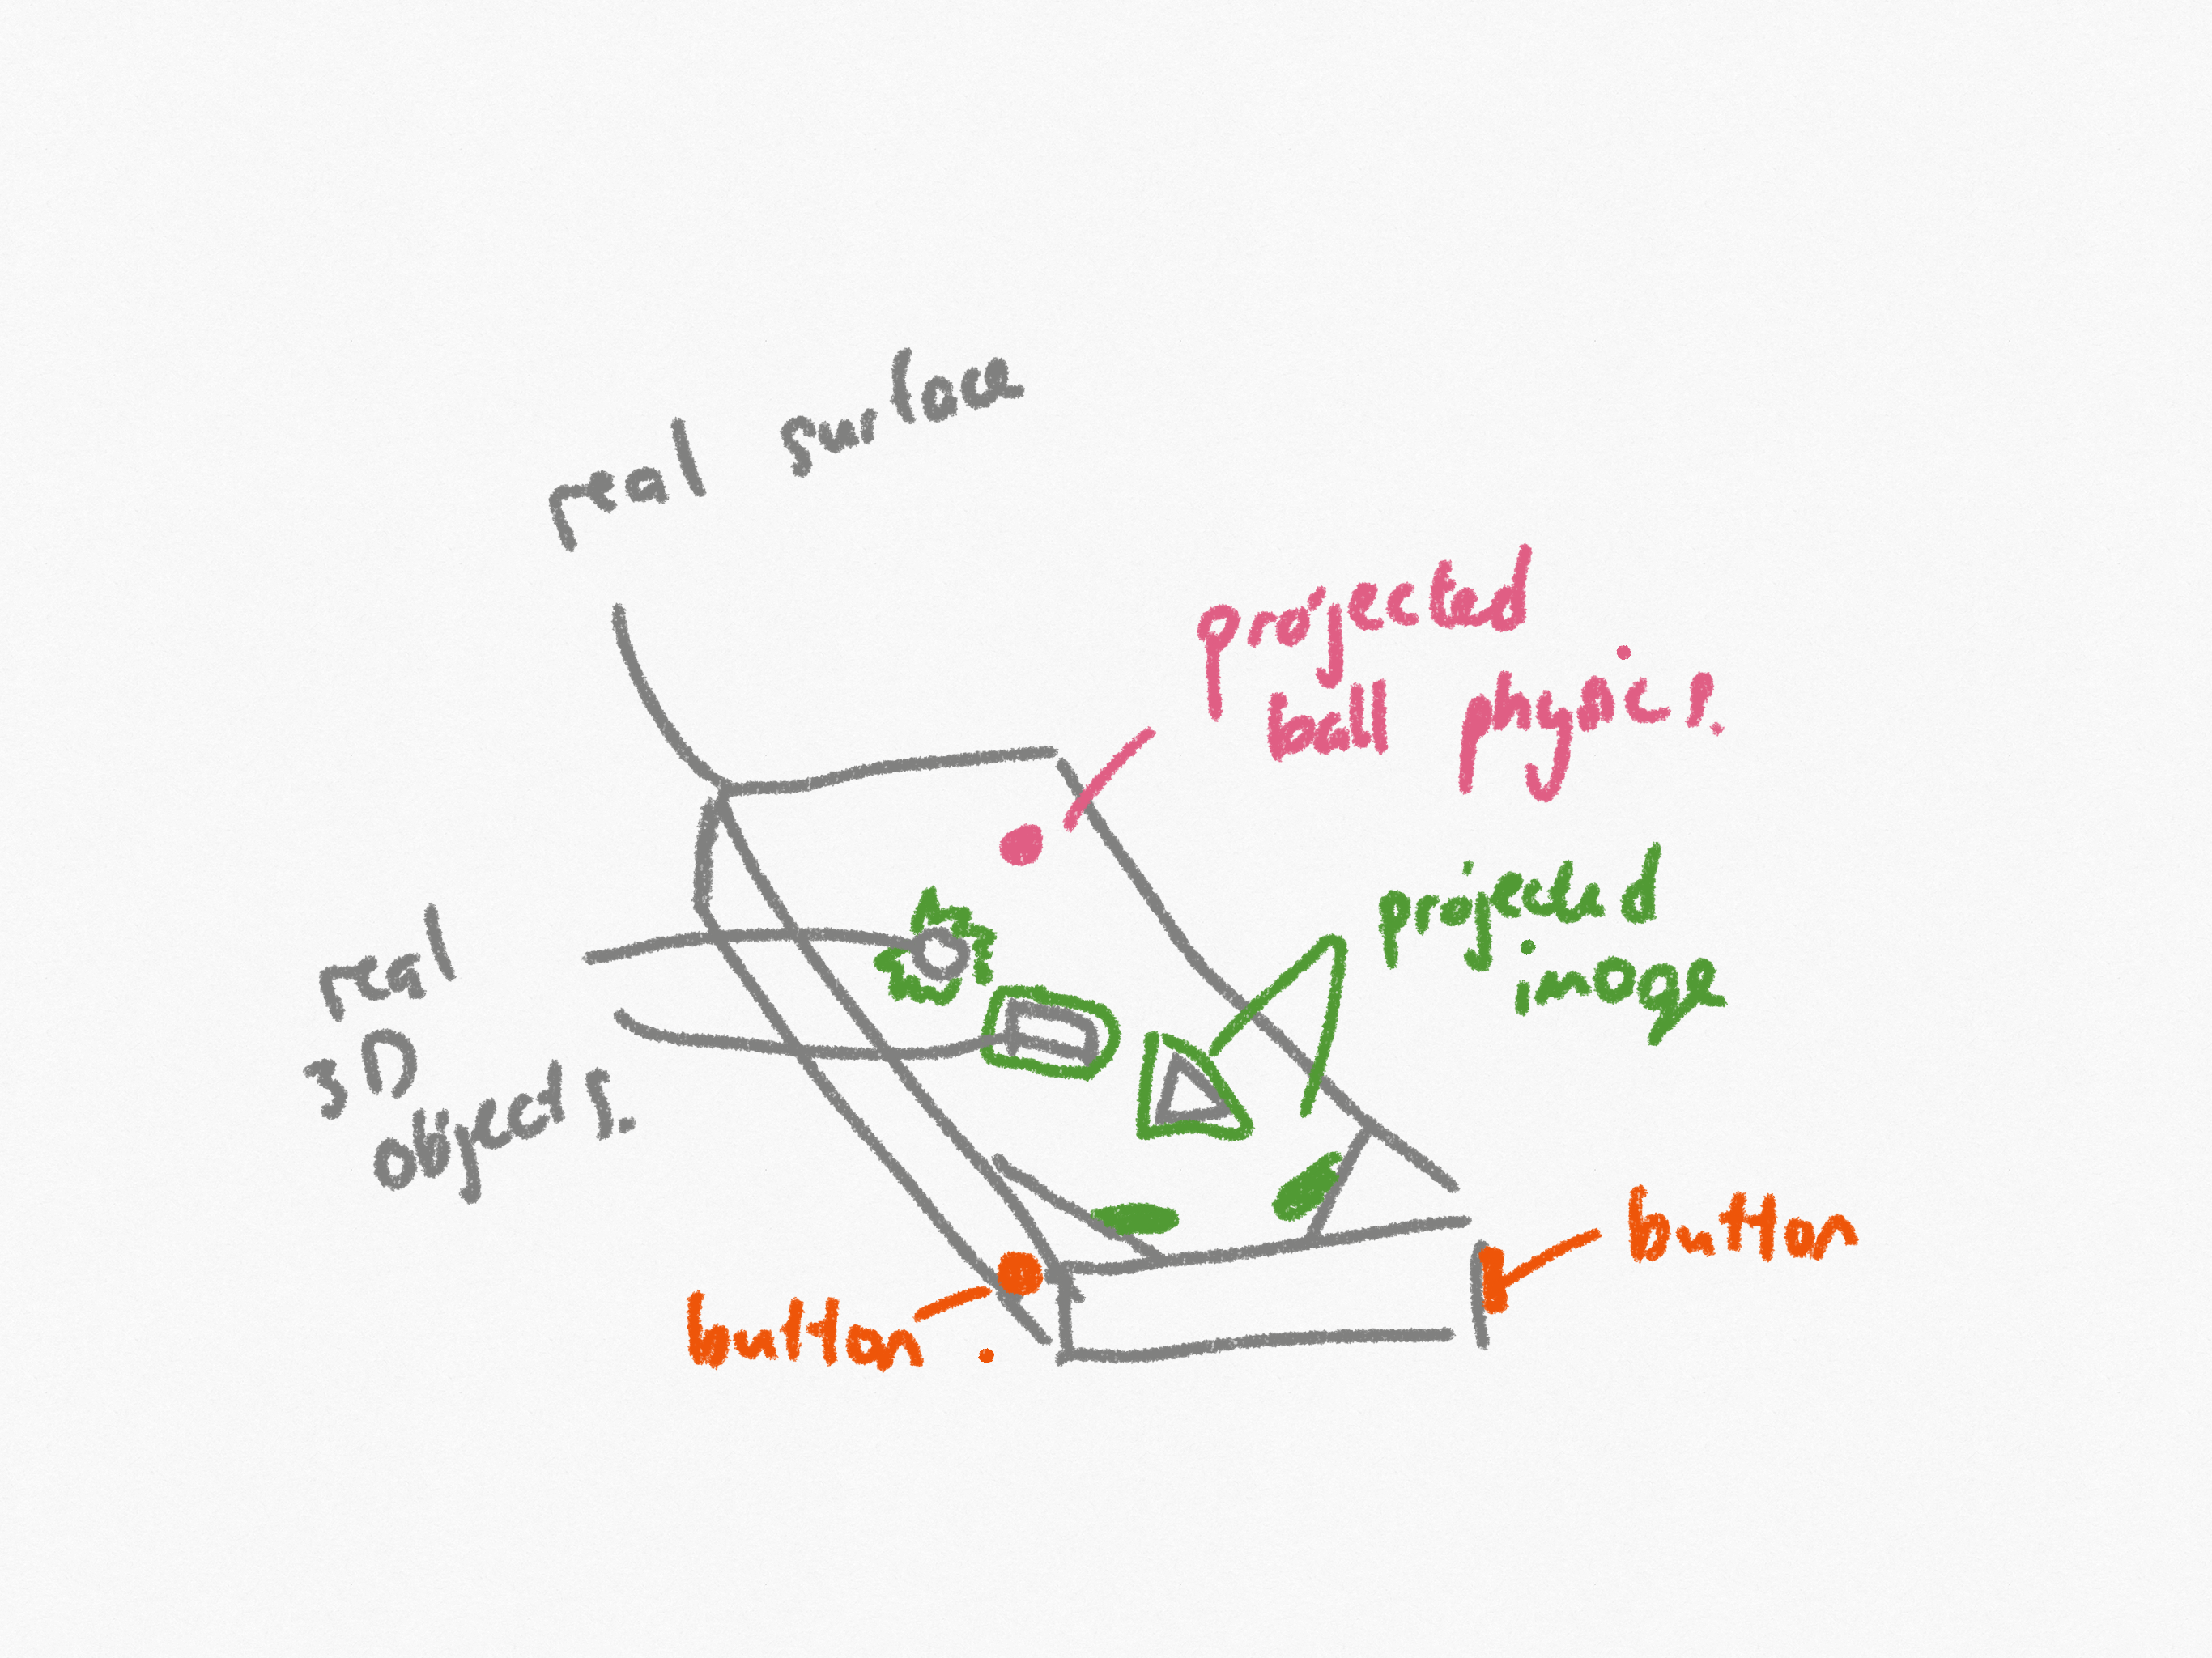 real surface
projected
ball physics.
projected
image
real
3D
objects.
button
button.